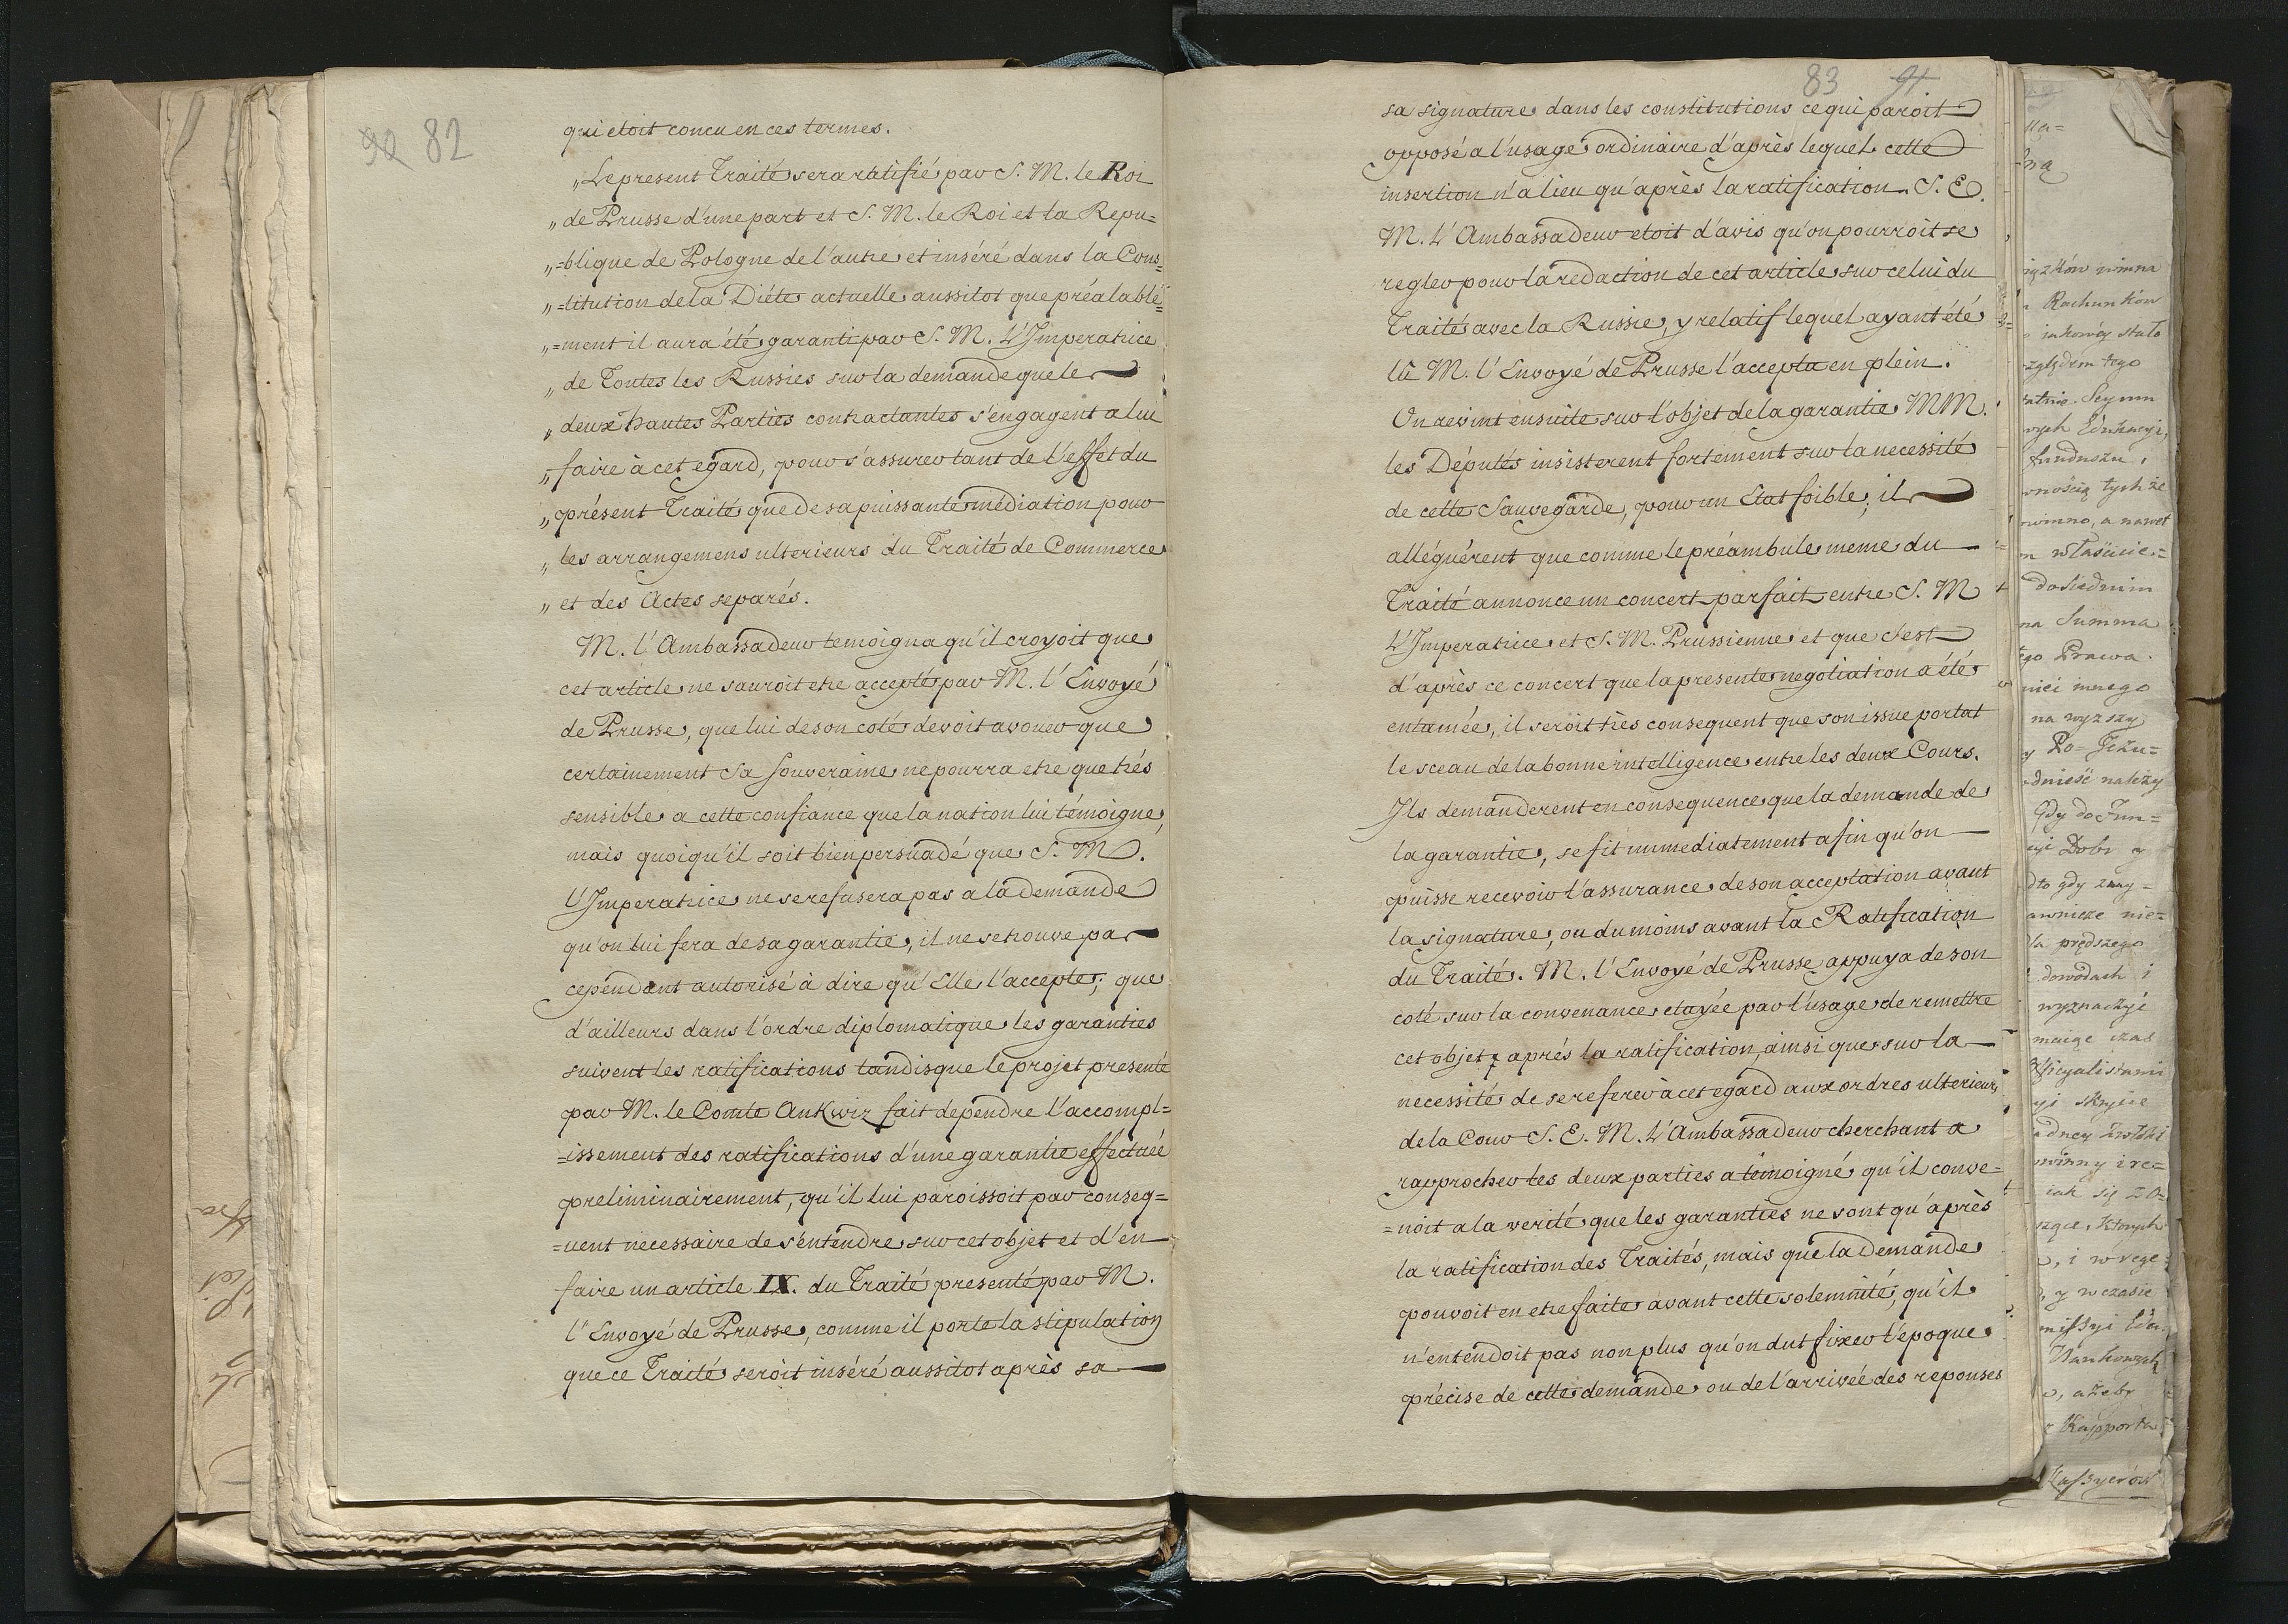 90 82
qui etoit concu en ces termes.
„Le present Traité sera ratifié par S. M. le Roi
„ de Prusse d'une part et S. M. le Roi et la Repu=
„=blique de Pologne de l'autre et inséré dans la Cons=
„=titution de la Diéte actuelle aussitot que préalable=
„=ment il aura été garanti par S. M. L'Imperatrice
„ de Toutes les Russies sur la demande que le
„ deux hautes Parties contractantes s'engagent a lui
„ faire à cet egard, pour s'assurer tant de l'effet du
„ présent Traité que de sa puissante médiation pour
„ les arrangemens ulterieurs du Traité de Commerce
„ et des Actes separés.
M. l'Ambassadeur temoigna qu'il croyoit que
cet article ne sauroit etre accepté par M. l'Envoyé
de Prusse, que lui de son coté devoit avouer que
certainement Sa Souveraine ne pourra etre que trés
sensible a cette confiance que la nation lui témoigne,
mais quoiqu'il soit bien persuadé que S. M.
L'Imperatrice ne se refusera pas a la demande
qu'on lui fera de sa garantie, il ne se trouve pas
cependant autorisé à dire qu'Elle l'accepte; que
d'ailleurs dans l'ordre diplomatique les garanties
suivent les ratifications tandisque le projet presenté
par M. le Comte Ankwiz fait dependre l'accompl=
=issement des ratifications d'une garantie effectuée
preliminairement, qu'il lui paroissoit par conseq=
=uent necessaire de s'entendre sur cet objet et d'en
faire un article IX. du Traité presenté par M.
l'Envoyé de Prusse, comme il porte la stipulation
que ce Traité seroit inséré aussitot après sa
83 91
sa signature dans les constitutions ce qui paroit
opposé a l'usage ordinaire d'après lequel cette
insertion n'a lieu qu'après la ratification. S. E.
M. L'Ambassadeur etoit d'avis qu'on pourroit se
regler pour la redaction de cet article sur celui du
Traité avec la Russie, y relatif lequel ayant été
lû M. l'Envoyé de Prusse l'accepta en plein.
On revint ensuite sur l'objet de la garantie MM.
les Députés insisterent fortement sur la necessité
de cette Sauvegarde, pour un Etat foible; il
alléguérent que comme le préambule meme du
Traité annonce un concert parfait entre S. M
L'Imperatrice et S. M. Prussienne et que c'est
d'après ce concert que la presente negotiation a été
entamée, il seroit très consequent que son issue portat
le sceau de la bonne intelligence entre les deux Cours.
Ils demanderent en consequence que la demande de
la garantie, se fit immediatement afin qu'on
puisse recevoir l'assurance de son acceptation avant
la signature, ou du moins avant la Ratification
du Traité. M. l'Envoyé de Prusse appuya de son
coté sur la convenance etayée par l'usage de remettre
cet objet après la ratification, ainsi que sur la
necessité de se referer à cet egard aux ordres ulterieurs
de la Cour S. E. M. L'Ambassadeur cherchant a
rapprocher les deux parties a témoigné qu'il conve=
=noit a la verité que les garanties ne sont qu'après
la ratification des Traités, mais que la demande
pouvoit en etre faite avant cette solemnité, qu'il
n'entendoit pas non plus qu'on dut fixer l'époque
précise de cette demande ou de l'arrivée des reponses
Rachunków
zględem tego
Seymu
Edukacyi,
funduszu,
tych że
a nawet
Summa
Prawa
innego
na wyzszy
należy
Gdy do Fun=
Dobr y
gdy znay=
prędszego
dowodach i
czas
iak się zo=
których
y w czasie
ażeby
Rapporta